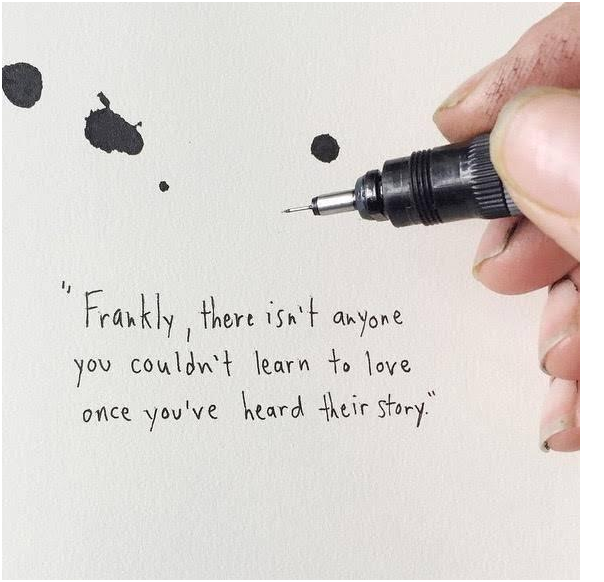 "Frankly, there isn't anyone
you couldn't learn to love
once you've heard their story."